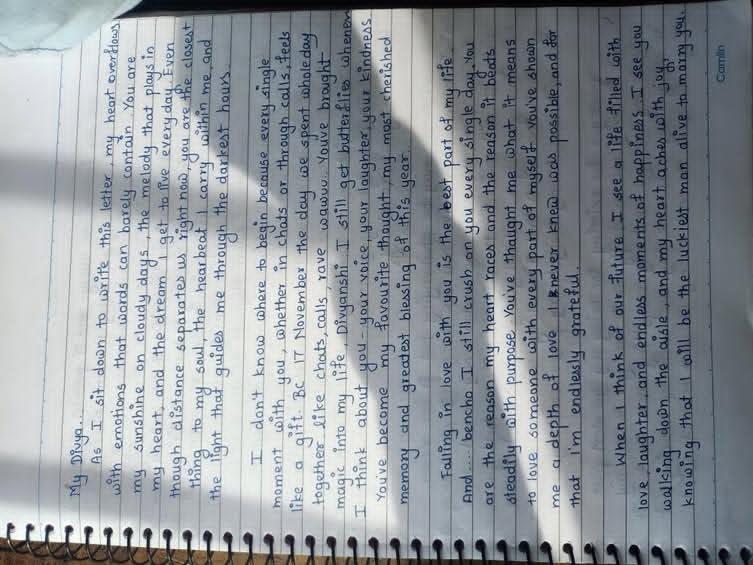 My Divya..
As I sit down to write this letter, my heart overflows
with emotions that words can barely contain. You are
my sunshine on cloudy days, the melody that plays in
my heart, and the dream I get to live everyday. Even
though distance separates us right now, you are the closest
thing to my soul, the hearbeat I carry within me, and
the light that guides me through the darkest hours.
I don't know where to begin because every single
moment with you, whether in chats or through calls, feels
like a gift. BC 17 November the day we spent whole day
together like chats, calls, rave wawuu.. You've brought
magic into my life, Divyanshi I still get butterflies whenever
I think about you - your voice, your laughter, your kindness.
You've become my favourite thought, my most cherished
memory and greatest blessing of this year.
Falling in love with you is the best part of my life.
And.... bencho I still crush on you every single day. You
are the reason my heart races and the reason it beats
steadily with purpose. You've thaught me what it means
to love someone with every part of myself you've shown
me a depth of love I never knew was possible, and for
that I'm endlessly grateful.
When I think of our future, I see a life filled with
love, laughter, and endless moments of happiness. I see you
walking down the aisle, and my heart aches with joy,
knowing that I will be the luckiest man alive to marry you.
Camlin